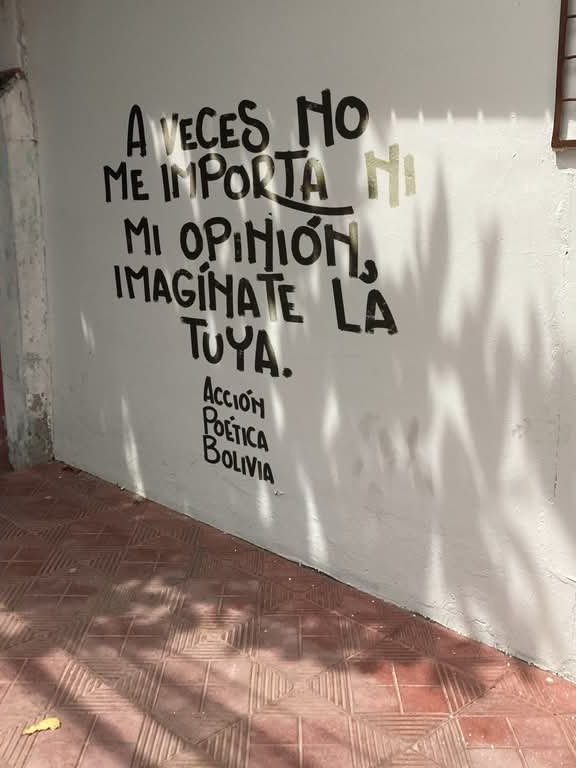 A VECES NO
ME IMPORTA NI
MI OPINIÓN,
IMAGÍNATE LA
TUYA.
ACCIÓN
POÉTICA
BOLIVIA